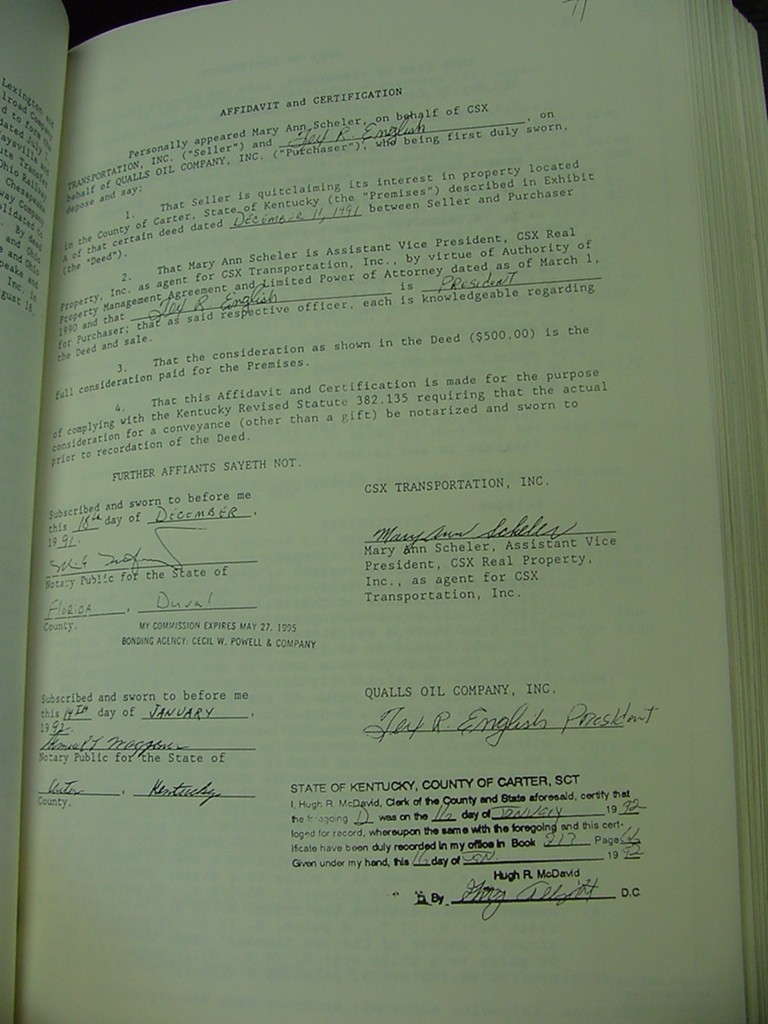 Lexington and
lroad Company
d to form the
dated July 1,
aysville and
ute Transfer
Ohio Railway
Chesapeake
way Company
olidated to
By deed
and Ohio
e and Ohio
peake and
Inc. in
gust 18,
AFFIDAVIT and CERTIFICATION
Personally appeared Mary Ann Scheler, on behalf of CSX
TRANSPORTATION, INC. ("Seller") and Tex R. English, on
behalf of QUALLS OIL COMPANY, INC. ("Purchaser"), who being first duly sworn,
depose and say:
1. That Seller is quitclaiming its interest in property located
in the County of Carter, State of Kentucky (the "Premises") described in Exhibit
A of that certain deed dated DECEMBER 11, 1991 between Seller and Purchaser
(the "Deed").
2. That Mary Ann Scheler is Assistant Vice President, CSX Real
Property, Inc. as agent for CSX Transportation, Inc., by virtue of Authority of
Property Management Agreement and Limited Power of Attorney dated as of March 1,
1990 and that Tex R English is PRESIDENT
for Purchaser; that as said respective officer, each is knowledgeable regarding
the Deed and sale.
3. That the consideration as shown in the Deed ($500.00) is the
full consideration paid for the Premises.
4. That this Affidavit and Certification is made for the purpose
of complying with the Kentucky Revised Statute 382.135 requiring that the actual
consideration for a conveyance (other than a gift) be notarized and sworn to
prior to recordation of the Deed.
FURTHER AFFIANTS SAYETH NOT.
Subscribed and sworn to before me
this 18th day of DECEMBER,
1991.
Notary Public for the State of
FLORIDA, Duval
County.
MY COMMISSION EXPIRES MAY 27, 1995
BONDING AGENCY: CECIL W. POWELL & COMPANY
CSX TRANSPORTATION, INC.
Mary Ann Scheler
Mary Ann Scheler, Assistant Vice
President, CSX Real Property,
Inc., as agent for CSX
Transportation, Inc.
Subscribed and sworn to before me
this 14TH day of JANUARY,
1992.
Notary Public for the State of
Carter, Kentucky
County.
QUALLS OIL COMPANY, INC.
Tex R. English President
STATE OF KENTUCKY, COUNTY OF CARTER, SCT
I, Hugh R. McDavid, Clerk of the County and State aforesaid, certify that
the foregoing D was on the 16 day of January 19 92
loged for record, whereupon the same with the foregoing and this cert-
ificate have been duly recorded in my office in Book 217 Page 66
Given under my hand, this 16 day of JAN. 19 92
Hugh R. McDavid
By D.C